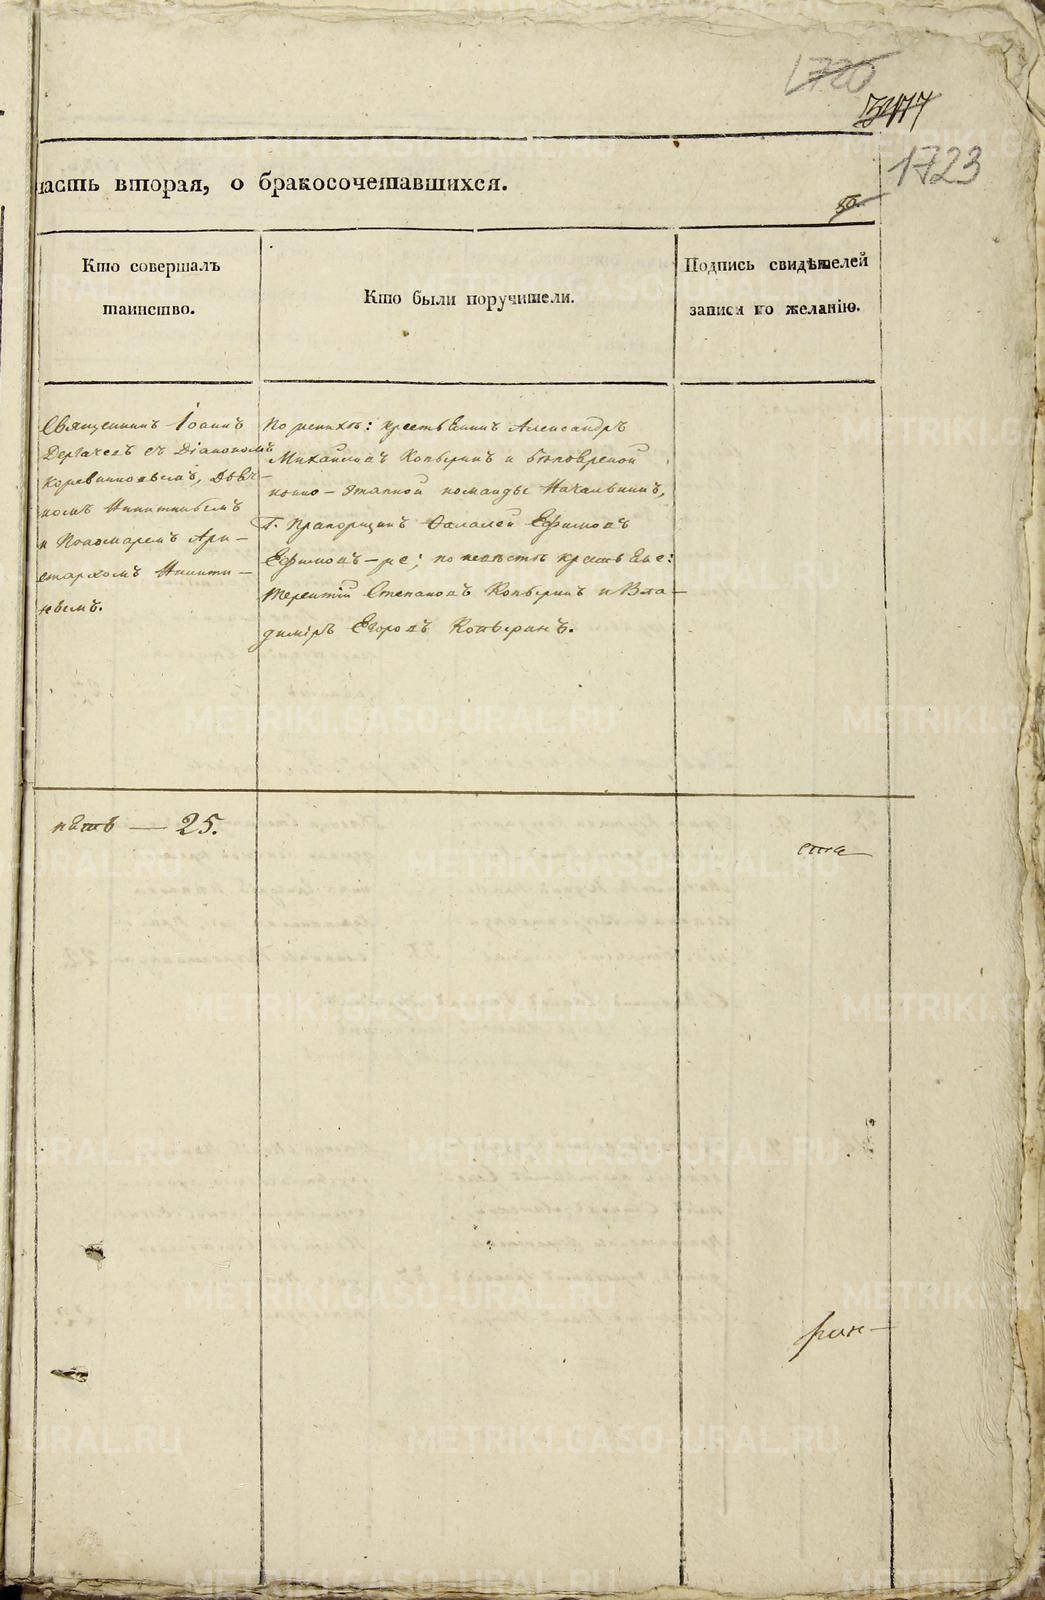 1720
3477
1723
часть вторая, о бракосочетавшихся.
50.
Кто совершалъ
таинство.
Кто были поручители.
Подпись свидѣтелей
записи по желанію.
Священникъ Іоаннъ
Дергачевъ съ Діакономъ
Коровинковымъ, Дьяч-
комъ Никитинымъ
и Пономаремъ Ари-
стархомъ Никити-
нымъ.
По женихѣ: крестьянинъ Александръ
Михайловъ Копыринъ и Бѣлоярской
конно-этапной команды Начальникъ,
Г. Прапорщикъ Фалалей Ефимовъ
Ефимовъ-же; по невѣстѣ крестьяне:
Терентій Степановъ Копыринъ и Вла-
диміръ Егоровъ Копыринъ.
пять — 25.
METRIKI.GASO-URAL.RU